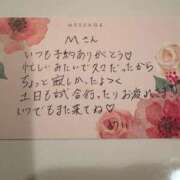 MESSAGE
Mさん
いつも予約ありがとう♡
忙しいみたいで久々だったから
ちょっと寂しかったよっっ
土日も試合ありお疲れ
いつでもまた来てね♡
めい